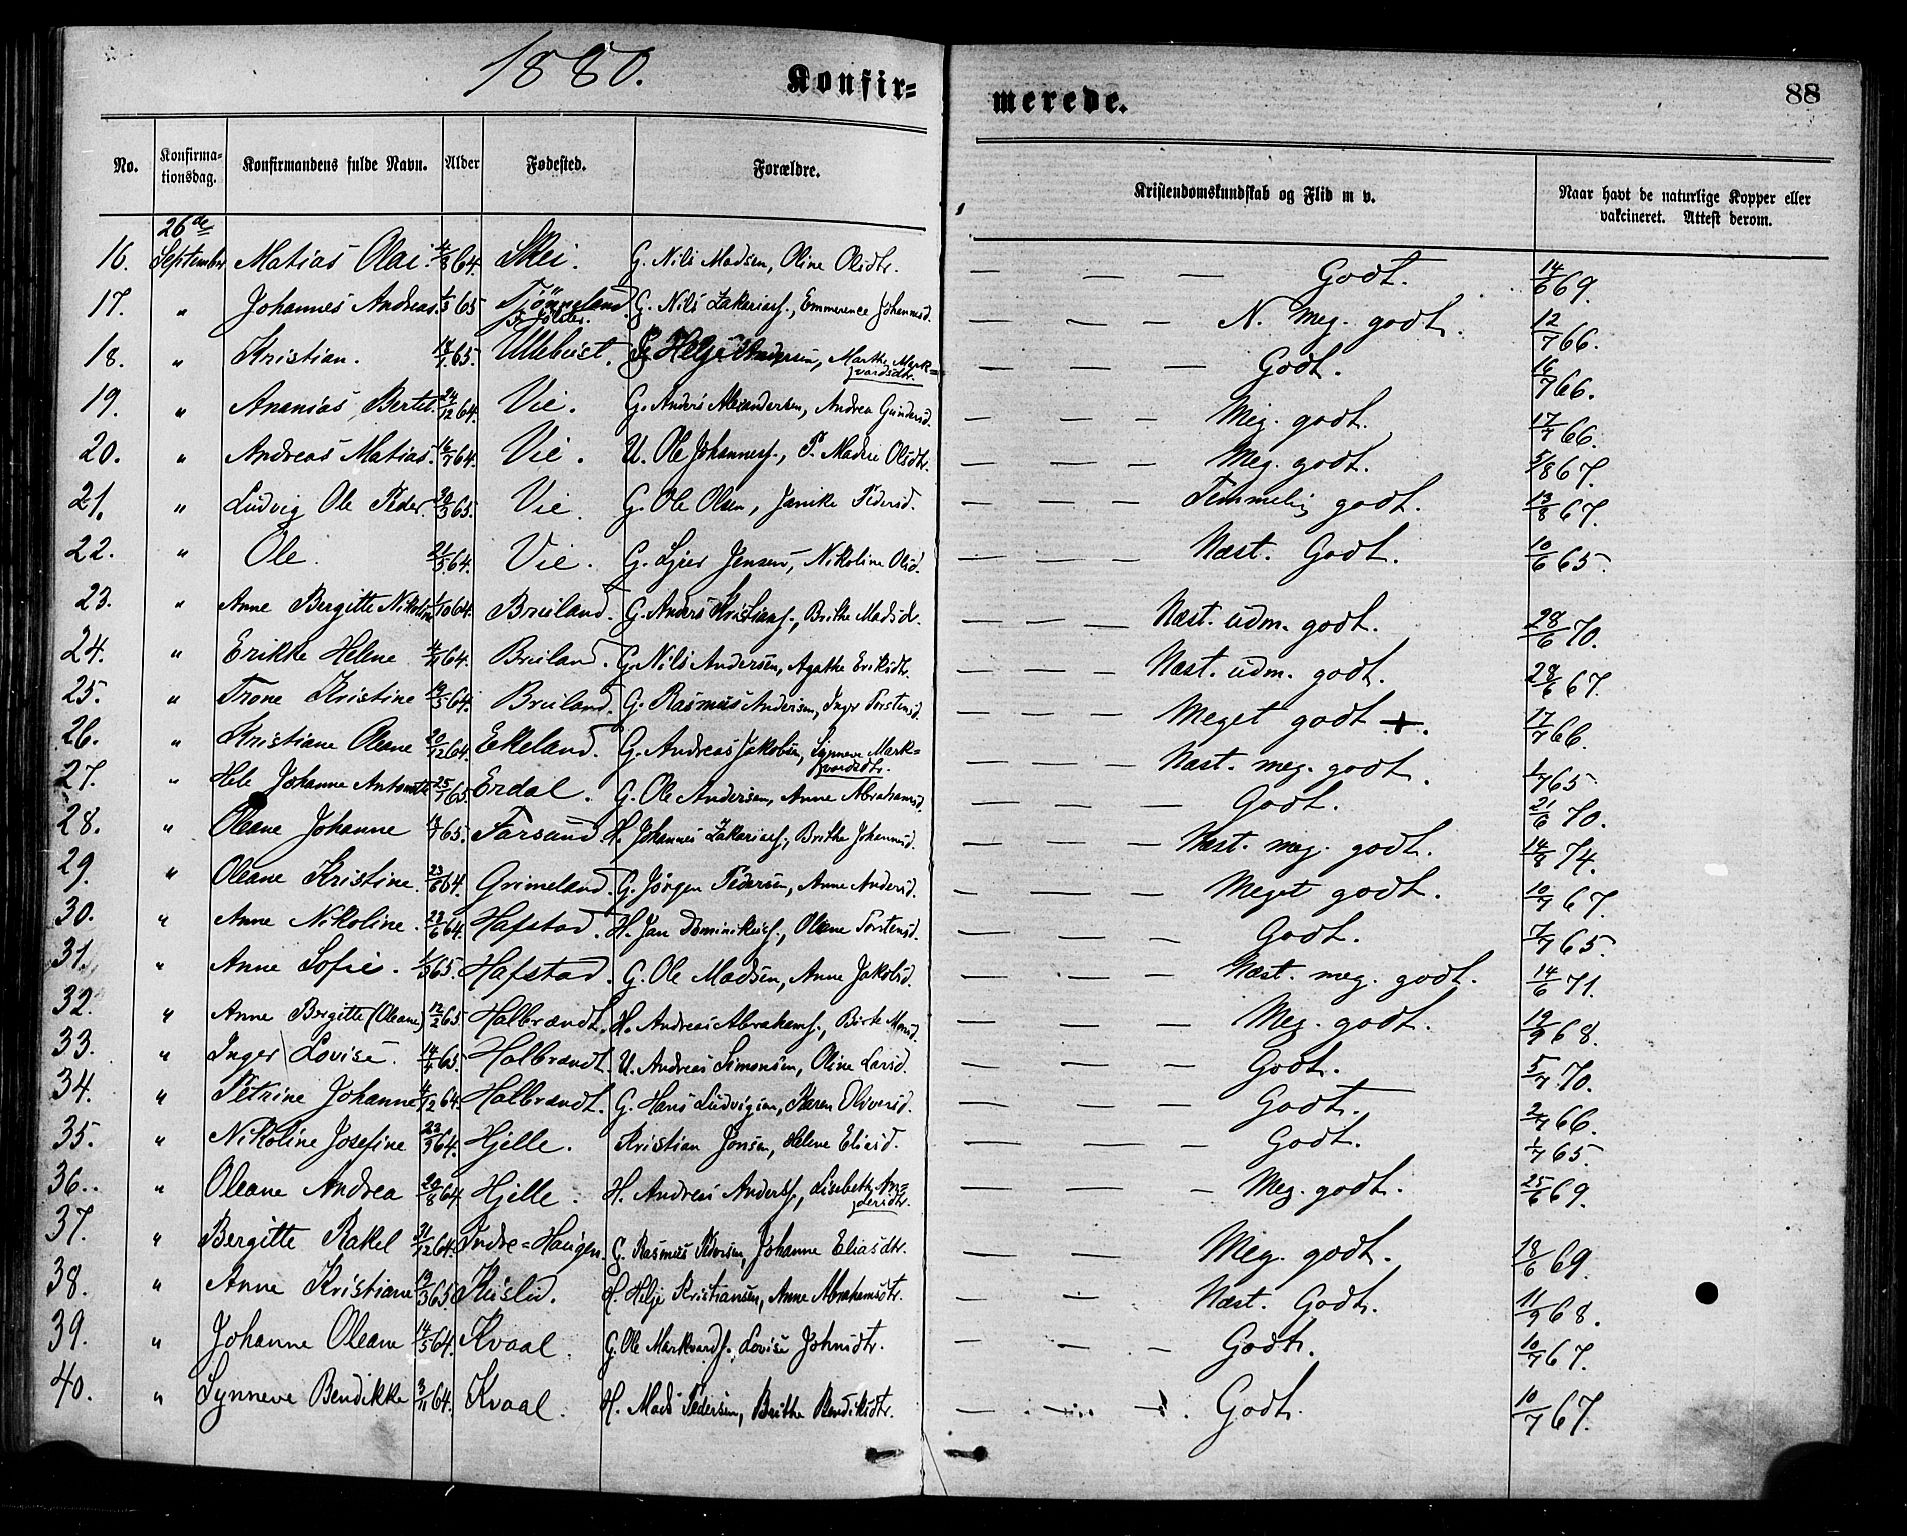 1880.
Konfir=
merede.
88
No.
Konfirma-
tionsdag.
Konfirmandens fulde Navn.
Alder
Fødested.
Forældre.
Kristendomskundskab og Flid m v.
Naar havt de naturlige Kopper eller
vakcineret. Attest derom.
26de
16. September Matias Olai. 4/8 64. Skei. G. Nils Madsen, Oline Olsdtr. — — — Godt. 14/6 69.
17. " Johannes Andreas. 1/3 65 Tjønneland G. Nils Zakariass., Emmerence Johannesd. — — — N. meg. godt. 12/7 66.
i Jølster.
18. " Kristian. 65. Ullebust. Helje Andersen, Marthe Mark= — — — Godt. 16/7 66.
vardsdtr.
19. " Ananias Bertel. 24/12 64. Vie. G. Anders Alexandersen, Andrea Gundersd. — — — Meg. godt. 17/7 66.
20. " Andreas Matias. 16/7 64. Vie. U. Ole Johanness., P. Madse Olsdtr. — — — Meg. godt. 5/8 67.
21. " Ludvig Ole Peder. 30/3 65. Vie. G. Ole Olsen, Janike Pedersd. — — — Temmelig godt. 13/8 67.
22. " Ole. 21/5 64. Vie. G. Jensen, Nikoline Olsd. — — — Næst. Godt. 10/6 65.
23. " Anne Bergitte Nikoline 1/10 64. Bruland. G. Anders Kristians., Brithe Madsd. — — — Næst. udm. godt. 28/6 70.
24. " Erikke Helene 4/11 64. Bruland. G. Nils Andersen, Agathe Eriksdtr. — — — Næst. udm. godt. 28/6 67.
25. " Trone Kristine 19/5 64. Bruland. G. Rasmus Andersen, Inger Torstensd. — — — Meget godt +. 17/7 66.
26. " Kristiane Oleane 20/12 64. Eikeland. G. Andreas Jakobsen, Synneve Mark= — — — Næst. meg. godt. 1/7 65
vardsdtr.
27. " Hele Johanne Antonette 25/1 65. Erdal. G. Ole Andersen, Anne Abrahamsd. — — — Godt. 21/6 70.
28. " Oleane Johanne 65. Farsund. H. Johannes Zakariass., Brithe Johannesd. — — — Næst. meg. godt. 74.
29. " Oleane Kristine. 23/6 64. Grimeland. G. Jørgen Pedersen, Anne Andersd. — — — Meget godt. 10/7 67.
30. " Anne Nikoline. 22/6 64. Hafstad. H. Jan Dominikuss., Oleane Torstensd. — — — Godt. 7/7 65.
31. " Anne Sofie. 65. Hafstad. G. Ole Madsen, Anne Jakobsd. — — — Næst. meg. godt. 14/6 71.
32. " Anne Bergitte (Oleane) 12/2 65. Halbrændt. H. Andreas Abrahams., Birte Monsd. — — — Meg. godt. 12/9 68.
33. " Inger Lovise. 14/4 65. Halbrændt. U. Andreas Simonsen, Oline Larsd. — — — Godt. 5/7 70.
34. " Petrine Johanne 4/12 64. Halbrændt. G. Hans Ludvigsen, Karen Oliversd. — — — Godt. 2/7 66.
35. " Nikoline Josefine 22/9 64. Hjelle. Kristian Jonsen, Helene Eliasd. — — — Godt. 1/7 65.
36. " Oleane Andrea 20/8 64. Hjelle. H. Andreas Anderss., Lisebeth An= — — — Meg. godt. 25/6 69.
dersdtr.
37. " Bergitte Rakel 31/12 64. Indre=Haugen. G. Rasmus Pedersen, Johanne Eliasdtr. — — — Meg. godt. 18/6 69.
38. " Anne Kristiane 19/3 65. H. Helje Kristiansen, Anne Abrahamsdtr. — — — Næst. Godt. 11/9 68.
39. " Johanne Oleane 14/5 64. Kvaal. G. Ole Markvards., Lovise Johnsdtr. — — — Godt. 10/7 67.
40. " Synneve Bendikke 3/11 64. Kvaal. H. Mads Pedersen, Brithe Bendiksdtr. — — — Godt. 10/7 67.